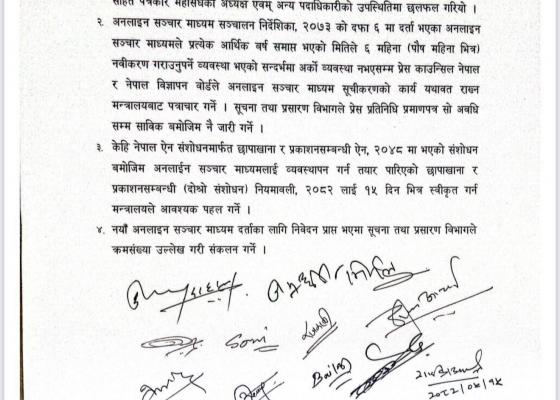 सहित पत्रकार महासंघका अध्यक्ष एवम् अन्य पदाधिकारीको उपस्थितिमा छलफल गरियो ।
२. अनलाइन सञ्चार माध्यम सञ्चालन निर्देशिका, २०७३ को दफा ६ मा दर्ता भएका अनलाइन
सञ्चार माध्यमले प्रत्येक आर्थिक बर्ष समाप्त भएको मितिले ६ महिना (पौष महिना भित्र)
नवीकरण गराउनुपर्ने व्यवस्था भएको सन्दर्भमा अर्को व्यवस्था नभएसम्म प्रेस काउन्सिल नेपाल
र नेपाल विज्ञापन बोर्डले अनलाइन सञ्चार माध्यम सूचीकरणको कार्य यथावत राख्न
मन्त्रालयबाट पत्राचार गर्ने । सूचना तथा प्रसारण विभागले प्रेस प्रतिनिधि प्रमाणपत्र सो अवधि
सम्म साविक बमोजिम नै जारी गर्ने ।
३. केहि नेपाल ऐन संशोधनमार्फत छापाखाना र प्रकाशनसम्बन्धी ऐन, २०४८ मा भएको संशोधन
बमोजिम अनलाईन सञ्चार माध्यमलाई व्यवस्थापन गर्न तयार पारिएको छापाखाना र
प्रकाशनसम्बन्धी (दोश्रो संशोधन) नियमावली, २०८२ लाई १५ दिन भित्र स्वीकृत गर्न
मन्त्रालयले आवश्यक पहल गर्ने ।
४. नयाँ अनलाइन सञ्चार माध्यम दर्ताका लागि निवेदन प्राप्त भएमा सूचना तथा प्रसारण विभागले
क्रमसंख्या उल्लेख गरी संकलन गर्ने ।
Soni
२०८२/०४/१५